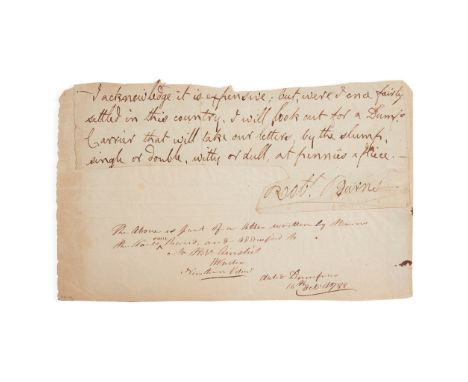 I acknowledge it is expensive; but, were I once fairly
settled in this country, I will look out for a Dumfs
Carrier that will take our letters, by the slump,
single or double, witty or dull, at pennies a piece. —
Robt. Burns
The above is part of a letter written by Burns
the
to
Mr Robt Ainslie
dated Dumfries
1788